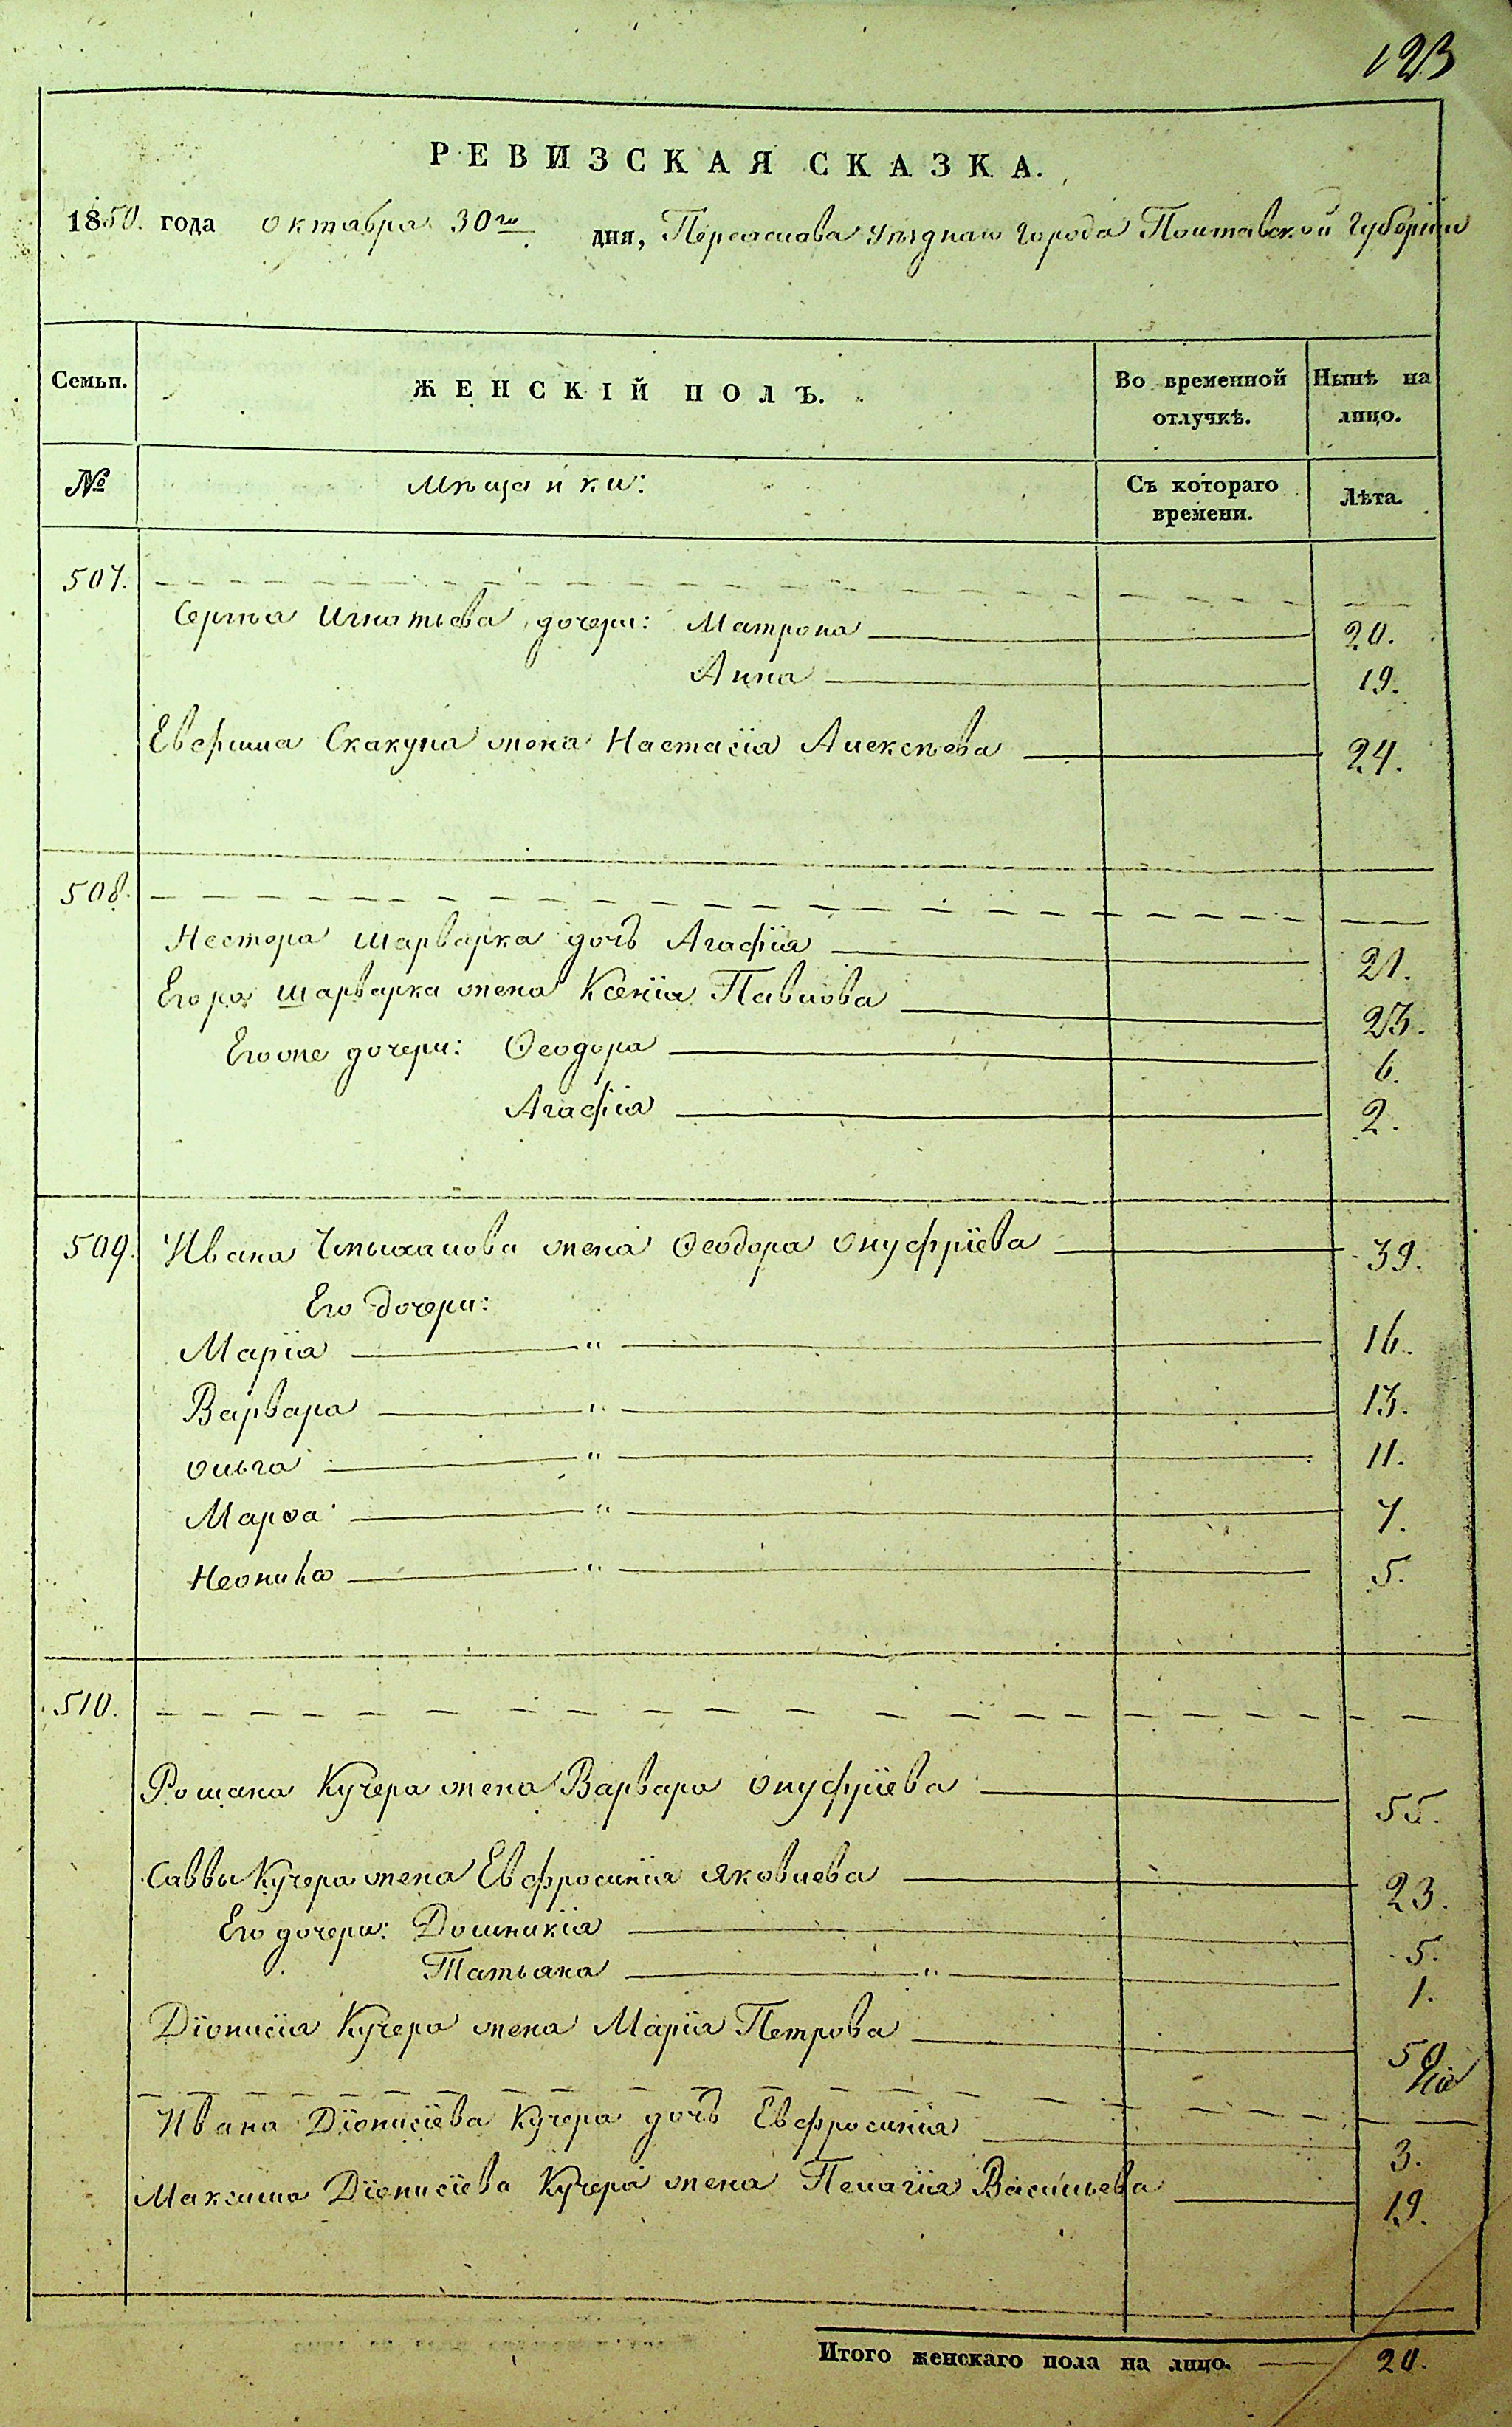 123
РЕВИЗСКАЯ СКАЗКА.
1850. года октября 30го дня, Переяслава уѣзднаго города Полтавской губерніи
Семьи. ЖЕНСКІЙ ПОЛЪ. Во временной отлучкѣ. Нынѣ на лицо.
№ Мѣщанки: Съ котораго времени. Лѣта.
507.
Сергѣя Игнатьева дочери: Матрона 20.
Анна 19.
Евфима Скакуна жена Настасія Алексѣева 24.
508.
Нестора Шарварка дочь Агафія 21.
Егора Шарварка жена Ксенія Павлова 23.
Егоже дочери: Ѳеодора 6.
Агафія 2.
509. Ивана жена Ѳеодора Онуфріева 39.
Его дочери:
Марія " 16.
Варвара " 13.
Ольга " 11.
Марѳа " 7.
Неонила " 5.
510.
Романа Кучера жена Варвара Онуфріева 55.
Саввы Кучера жена Евфросинія Яковлева 23.
Его дочери: Домникія 5.
Татьяна " 1.
Діонисія Кучера жена Марія Петрова 50
Ивана Діонисіева Кучера дочь Евфросинія 3.
Максима Діонисіева Кучера жена Пелагія Васильева 19.
Итого женскаго пола на лицо. 20.